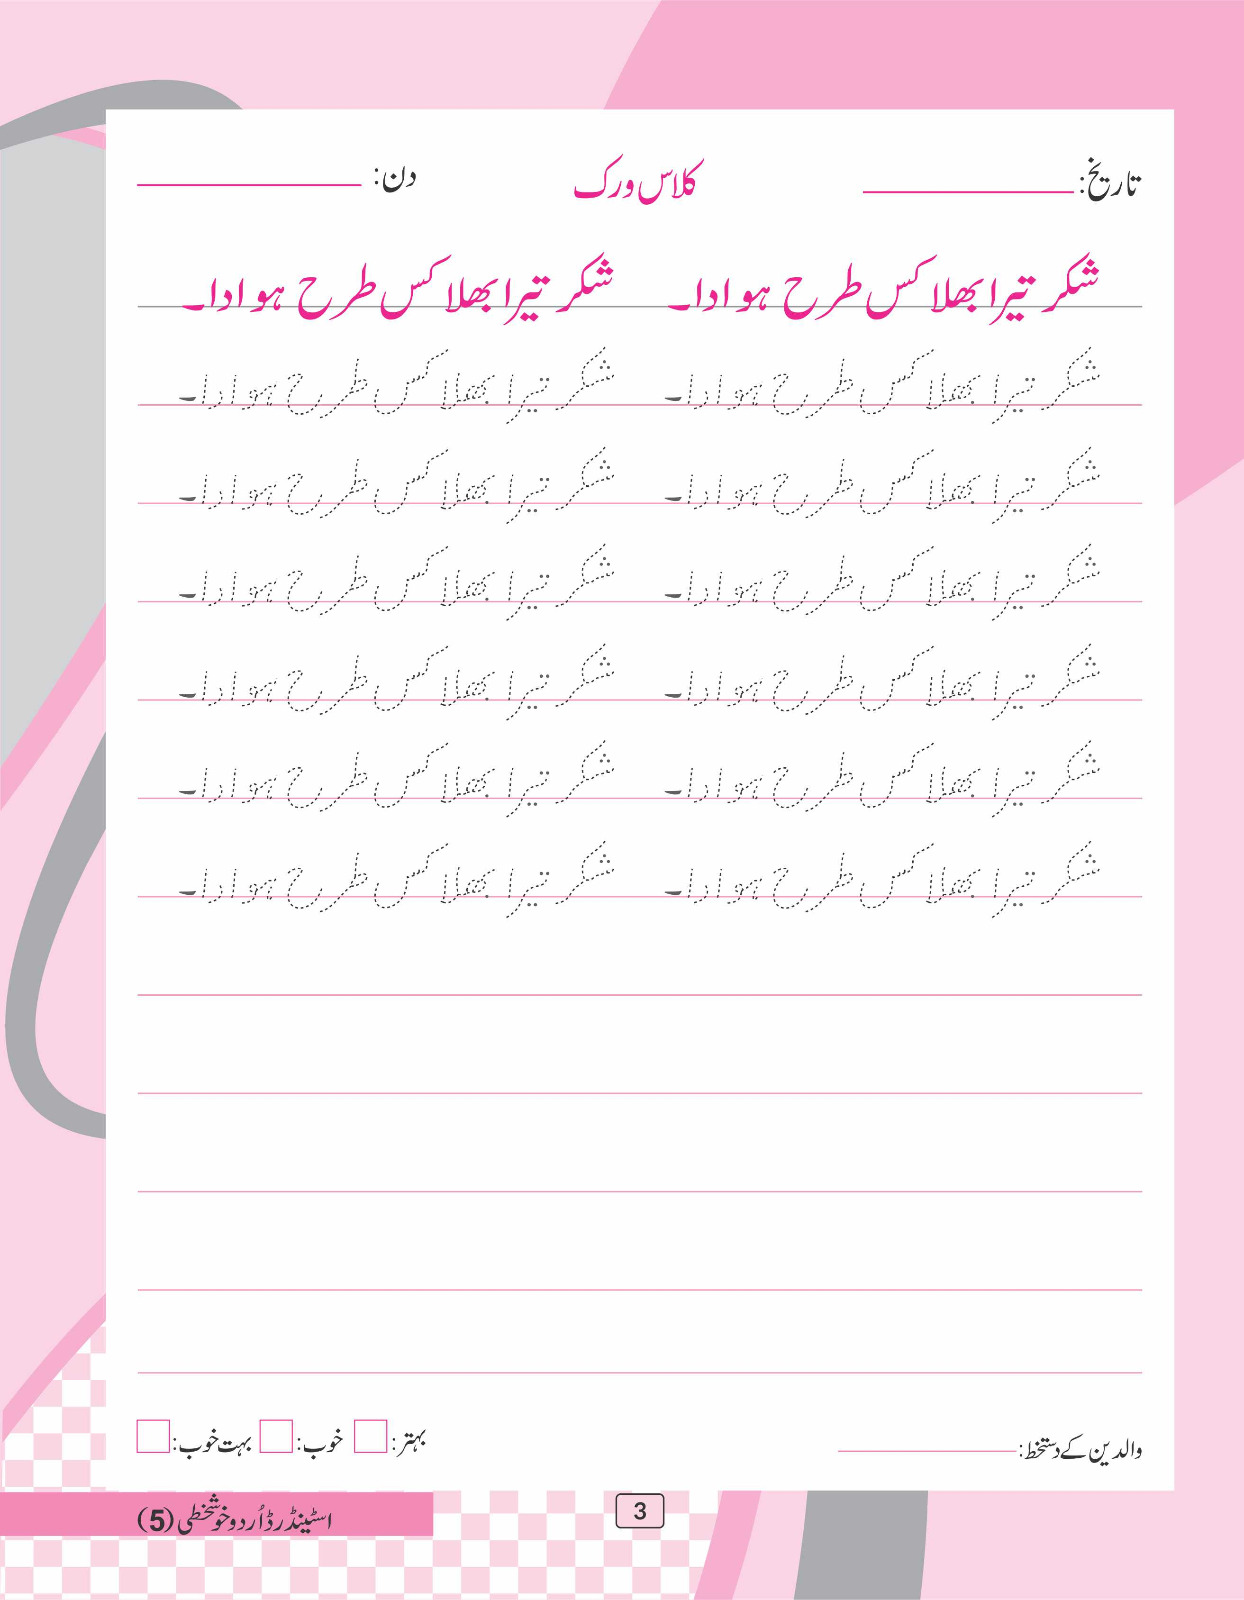 تاریخ: کلاس ورک دن:
شکر تیرا بھلا کس طرح ہو ادا۔ شکر تیرا بھلا کس طرح ہو ادا۔
شکر تیرا بھلا کس طرح ہو ادا۔ شکر تیرا بھلا کس طرح ہو ادا۔
شکر تیرا بھلا کس طرح ہو ادا۔ شکر تیرا بھلا کس طرح ہو ادا۔
شکر تیرا بھلا کس طرح ہو ادا۔ شکر تیرا بھلا کس طرح ہو ادا۔
شکر تیرا بھلا کس طرح ہو ادا۔ شکر تیرا بھلا کس طرح ہو ادا۔
شکر تیرا بھلا کس طرح ہو ادا۔ شکر تیرا بھلا کس طرح ہو ادا۔
شکر تیرا بھلا کس طرح ہو ادا۔ شکر تیرا بھلا کس طرح ہو ادا۔
والدین کے دستخط: بہتر: خوب: بہت خوب:
3
اسٹینڈرڈ اُردو خوشخطی (5)